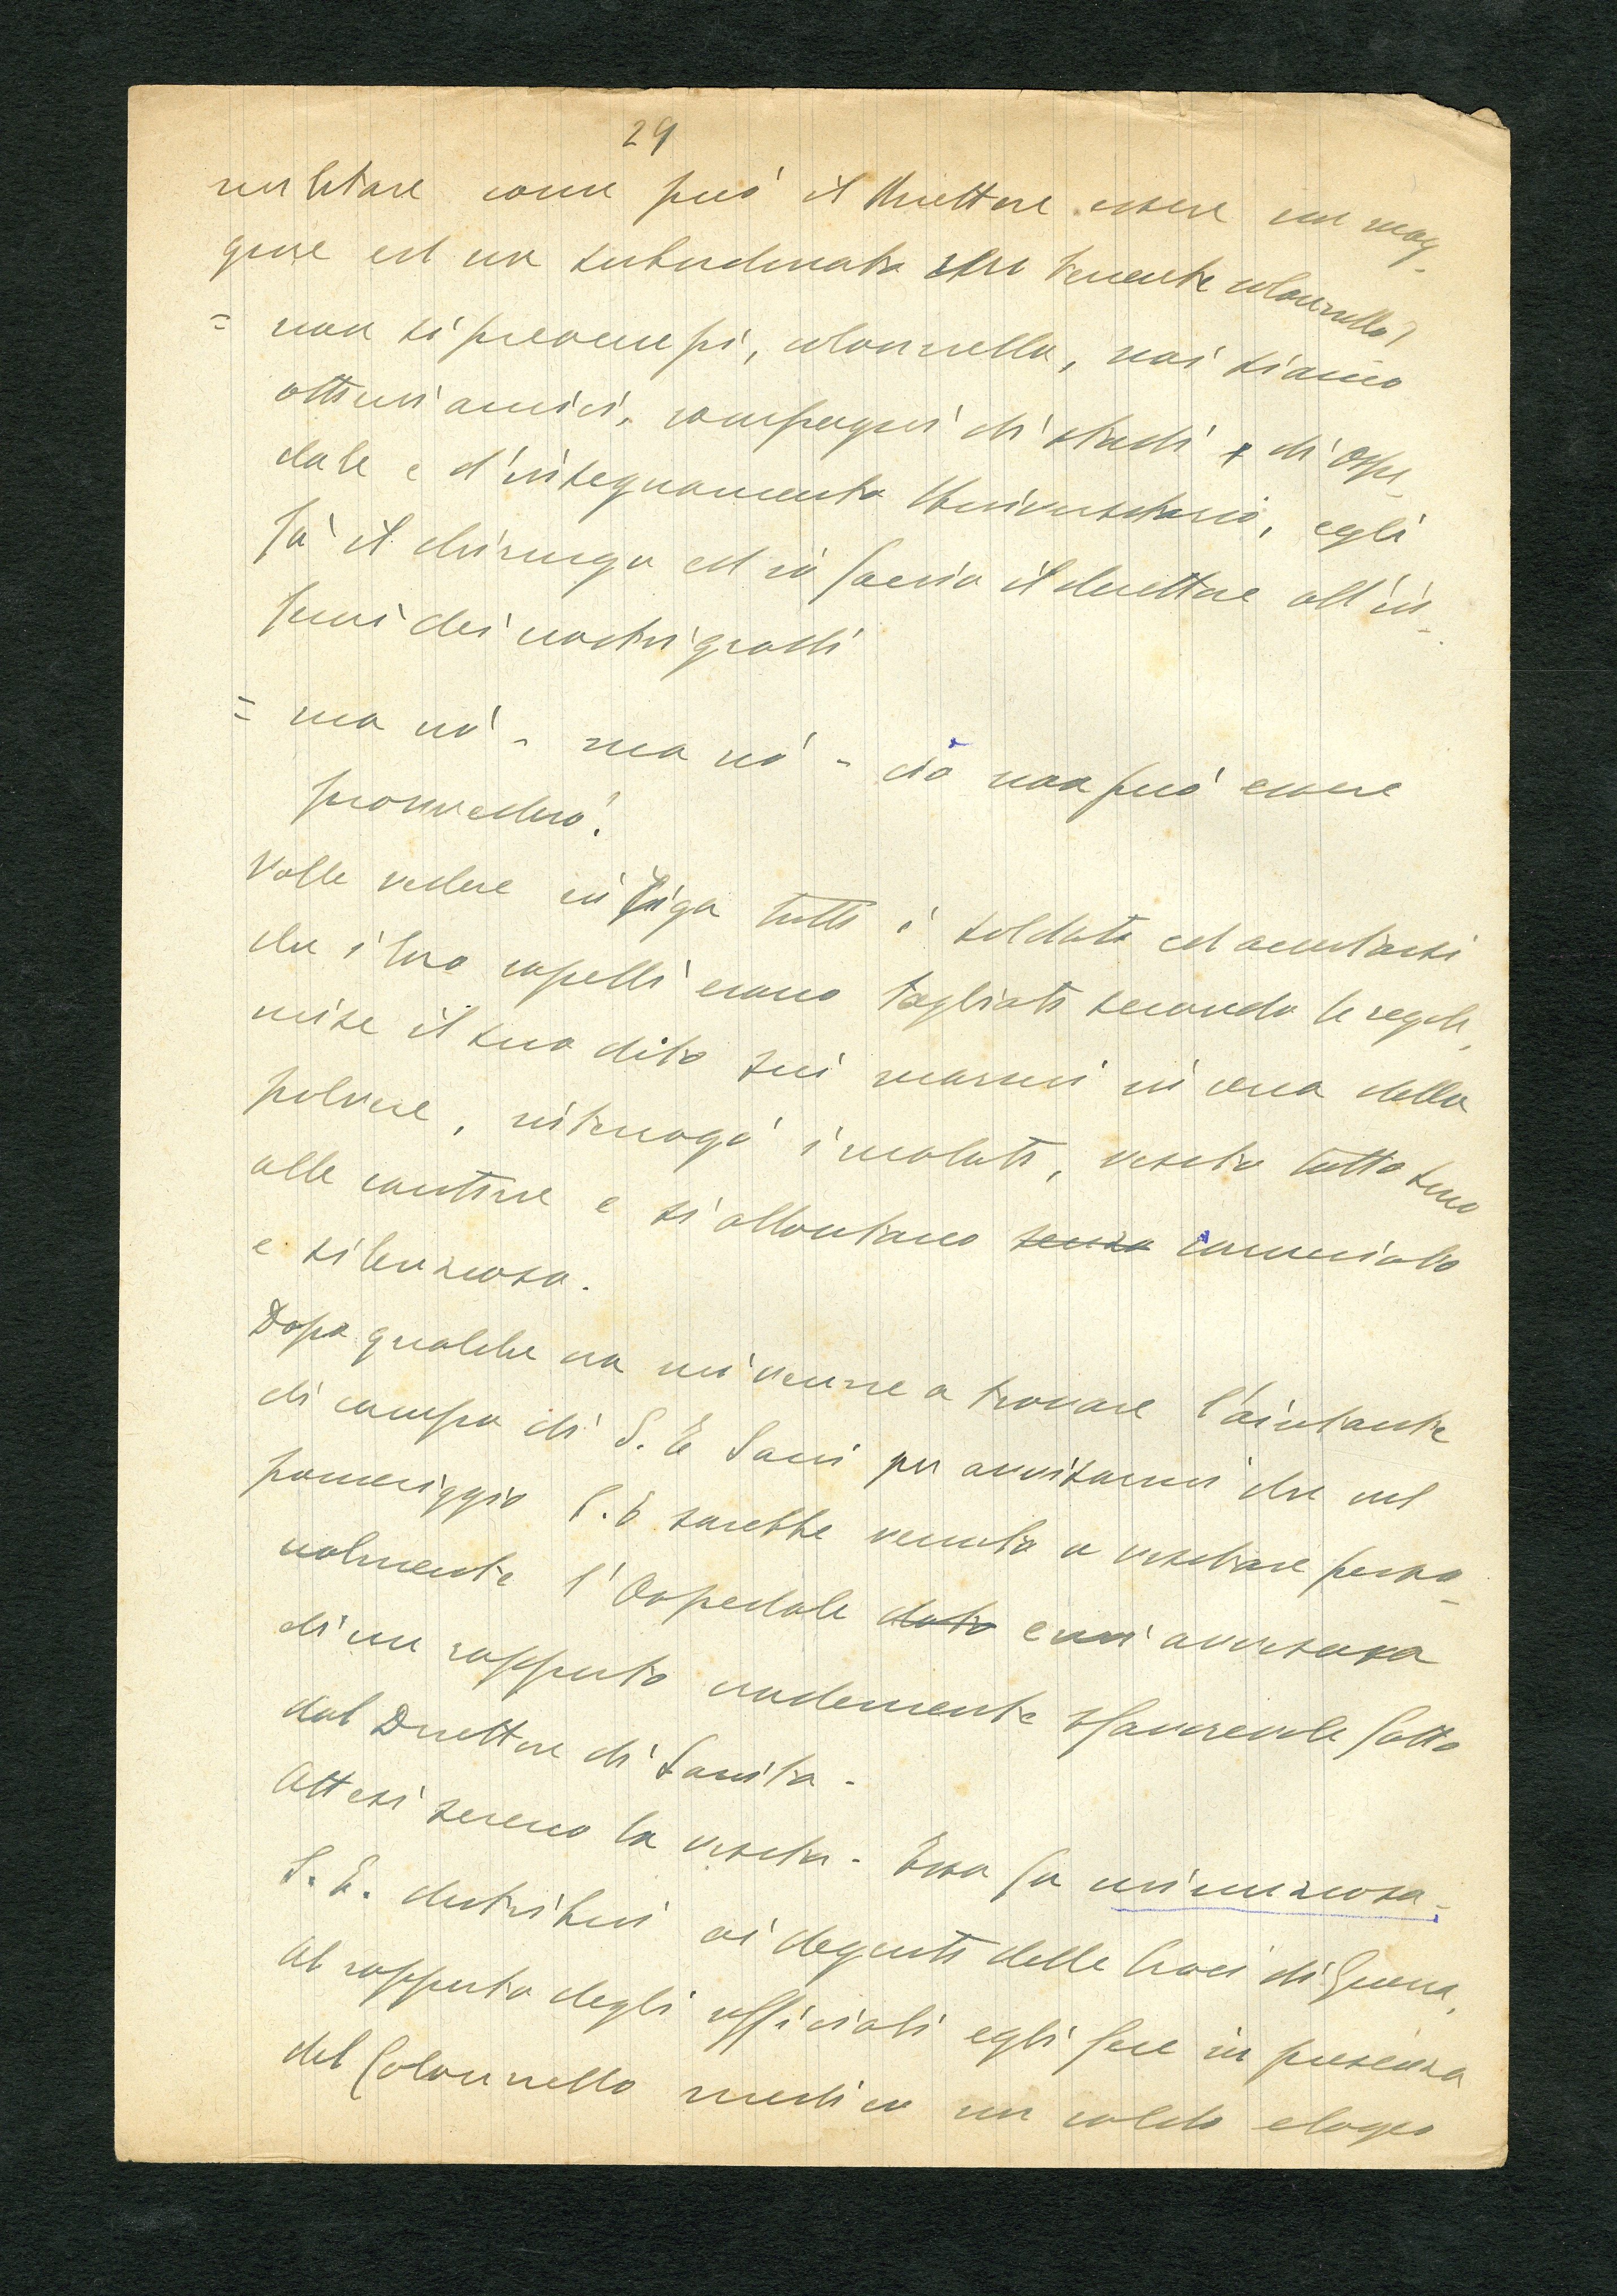 29
militare come può il Direttore essere un mag-
giore ed un subordinato un tenente colonnello?
= non si preoccupi, colonnello, noi siamo
ottimi amici, compagni di studi e di Ospe-
dale e d'insegnamento Universitario, egli
fà il chirurgo ed io faccio il direttore all'in-
fuori dei nostri gradi
= ma nò - ma nò - ciò non può essere
provvederò!
Volle vedere in riga tutti i soldati ed accertarsi
che i loro capelli erano tagliati secondo le regole,
mise il suo dito sui marmi in cerca della
polvere, interrogò i malati, visitò tutto sino
alle cantine e si allontanò senza accigliato
e silenzioso.
Dopo qualche ora mi venne a trovare l'aiutante
di campo di S. E Sani per avvisarmi che nel
pomeriggio S. E sarebbe venuto a visitare perso-
nalmente l'Ospedale dato e mi avvisava
di un rapporto rudemente sfavorevole fatto
dal Direttore di Sanità -
Attesi sereno la visita - Essa fu minunziosa -
S. E. distribuì ai degenti delle Croci di Guerra,
al rapporto degli ufficiali egli fece in presenza
del Colonnello medico un caldo elogio